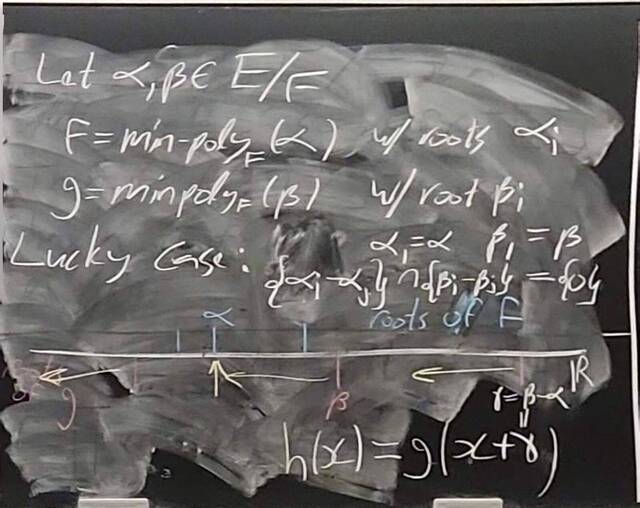 Let α, β ∈ E/F
F = min-poly_F(α) w/ roots α_i
g = minpoly_F(β) w/ root β_i
α_1 = α β_1 = β
Lucky Case: {α_i - α_j} ∩ {β_i - β_j} = {0}
α roots of F
g β γ = β - α ℝ
h(x) = g(x+γ)